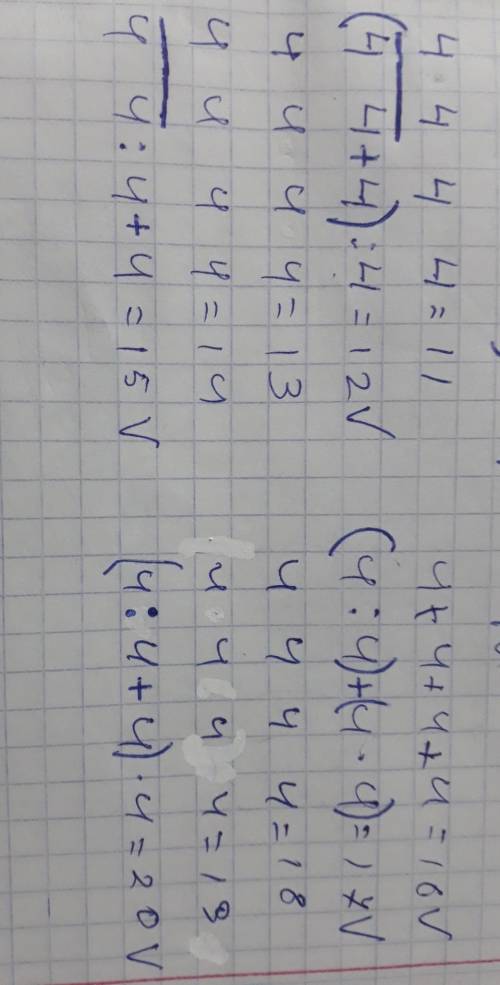 4 4 4 4 = 11
(44 + 4) : 4 = 12 V
4 4 4 4 = 13
4 4 4 4 = 14
44 : 4 + 4 = 15 V
4 + 4 + 4 + 4 = 16 V
(4 : 4) + (4 · 4) = 17 V
4 4 4 4 = 18
4 4 4 4 = 19
(4 : 4 + 4) · 4 = 20 V